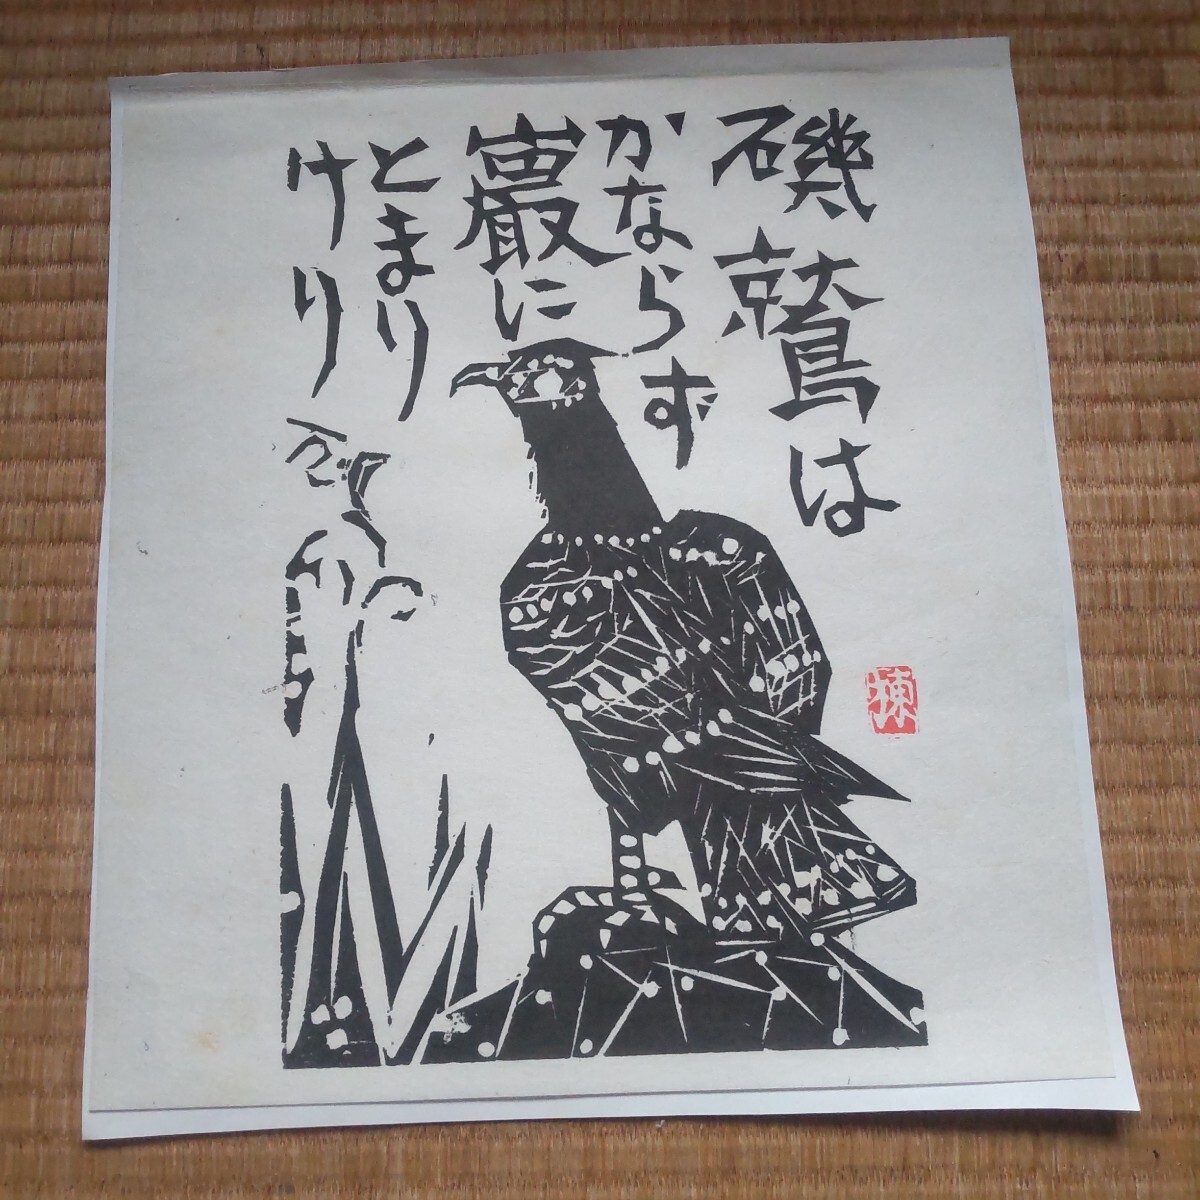 磯鷲は
かならず
巌に
とまり
けり
棟